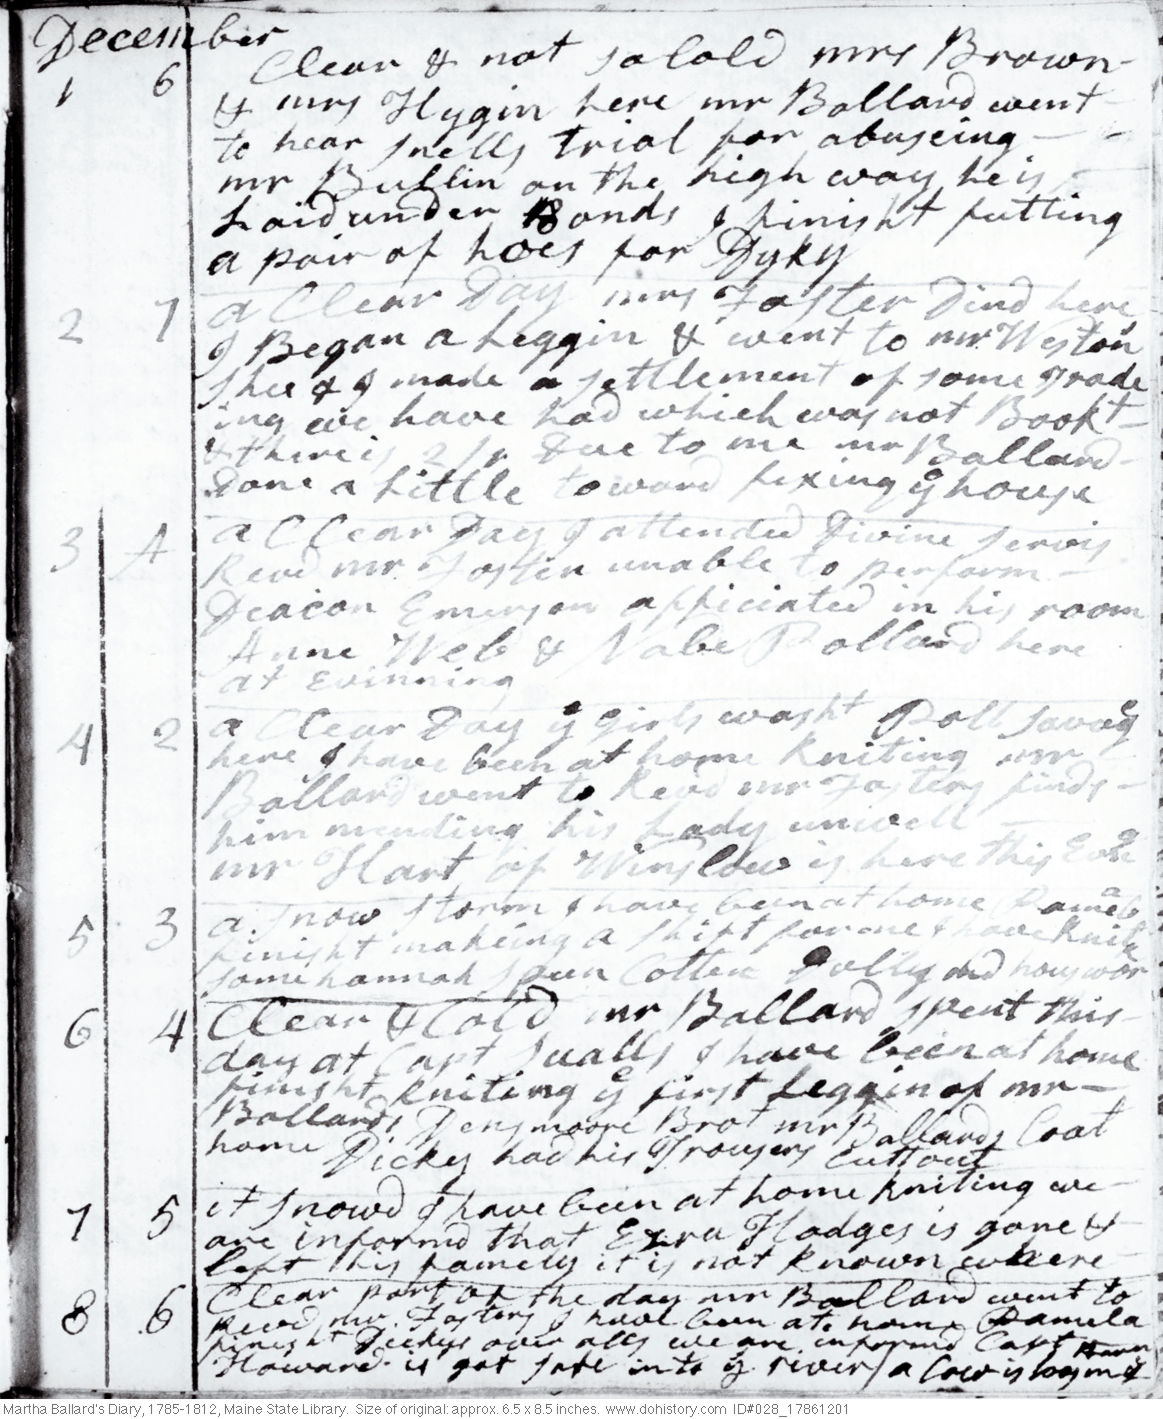 December
1 6 Clear & not so Cold mrs Brown
& mrs Hygin here mr Ballard went
to hear Snells trial for abuseing
mr Bullin on the high way he is
Laid under Bonds I finisht futting
a pair of hoes for Dyky
2 7 a Clear Day mrs Foster Dind here
I Began a Leggin & went to mr Weston
Shee & I made a settlement of some Trade
ing we have had which was not Bookt
& there is 2/ Due to me mr Ballard
Done a Little toward fixing ye house
3 A a Clear Day I attended Divine Servis
Revd mr Foster unable to perform
Deacon Emerson officiated in his room
Anne Web & Nabe Ballard here
at Evinning
4 2 a Clear Day ye girls washt Poll Savag
here I have been at home Kniting mr
Ballard went to Revd mr Fosters finds
him mending his Lady unwell
mr Hart of Winslow is here this Evn
5 3 a Snow Storm I have been at home
finisht makeing a shift for me I have Knit
some hannah Spun Cotten Dolly did hous wor
6 4 Clear & Cold mr Ballard spent this
day at Capt Sualls I have been at home
finisht Kniting ye first Leggin of mr
Ballards Densmoore Brot mr Ballards Coat
home Dicky had his Trousers Cutt out
7 5 it Snowd I have been at home Kniting we
are informd that Ezra Hodges is gone &
left his famely it is not known where
8 6 Clear part of the day mr Ballard went to
Revd mr Fosters I have been at home Pamela
finisht Dickys over alls we are informd Capt
Howard is got safe into ye river / a Cow is
Martha Ballard's Diary, 1785-1812, Maine State Library. Size of original: approx. 6.5 x 8.5 inches. www.dohistory.com ID#028_17861201